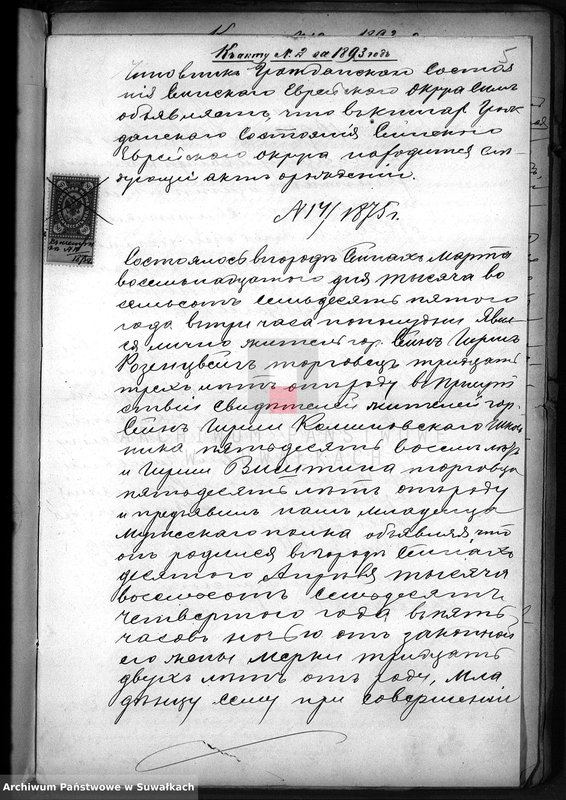 Къ акту N. 2 за 1893 годъ
5
Чиновникъ Гражданскаго Состоя
нія Сейнскаго Еврейскаго Округа симъ
объявляетъ, что въ книгахъ Граж
данскаго Состоянія Сейнскаго
Еврейскаго округа находится слѣ
дующій актъ о рожденіи.
N 17/1875 г.
Состоялось въ городѣ Сейнахъ Марта
восемнадцатаго дня тысяча во
семьсотъ семьдесятъ пятого
года, въ три часа пополудни. Явил
ся лично житель гор. Сейнъ Гиршъ
Розенцвейгъ торговецъ тридцать
трехъ лѣтъ отъ роду въ присут
ствіи свидѣтелей жителей гор.
Сейнъ Гирши Калиновскаго
пятьдесяти восьми лѣтъ
и Гирши Виштинца торговца
пятьдесятъ лѣтъ отъ роду
и предъявилъ намъ младенца
мужскаго пола объявляя, что
онъ родился въ городѣ Сейнахъ
десятого Апрѣля тысяча
восемьсотъ семьдесятъ
четвертого года въ пять
часовъ ночью отъ законной
его жены Мерки тридцать
двухъ лѣтъ отъ роду. Мла
денцу сему при совершеніи
ARCHIWUM PAŃSTWOWE
W SUWAŁKACH
Archiwum Państwowe w Suwałkach